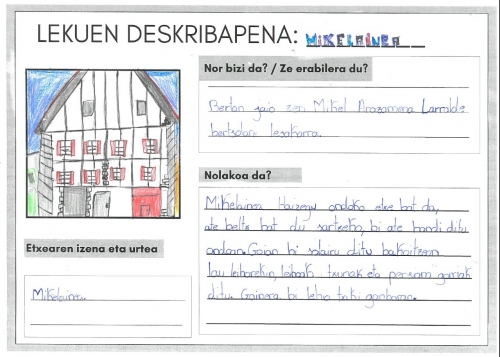 LEKUEN DESKRIBAPENA: MIKELAINEA
Nor bizi da? / Ze erabilera du?
Bertan jaio zen Mikel Arozamena Larralde
bertsolari lesakarra.
Nolakoa da?
Mikelainea Haizegu ondoko etxe bat da,
ate beltz bat du sartzeko, bi ate handi ditu
ondoan. Goian bi solairu ditu bakoitzean
lau leihorekin, leihoak txuriak eta persianak gorriak
ditu. Gainera bi leiho txiki ganbaran.
Etxearen izena eta urtea
Mikelainea